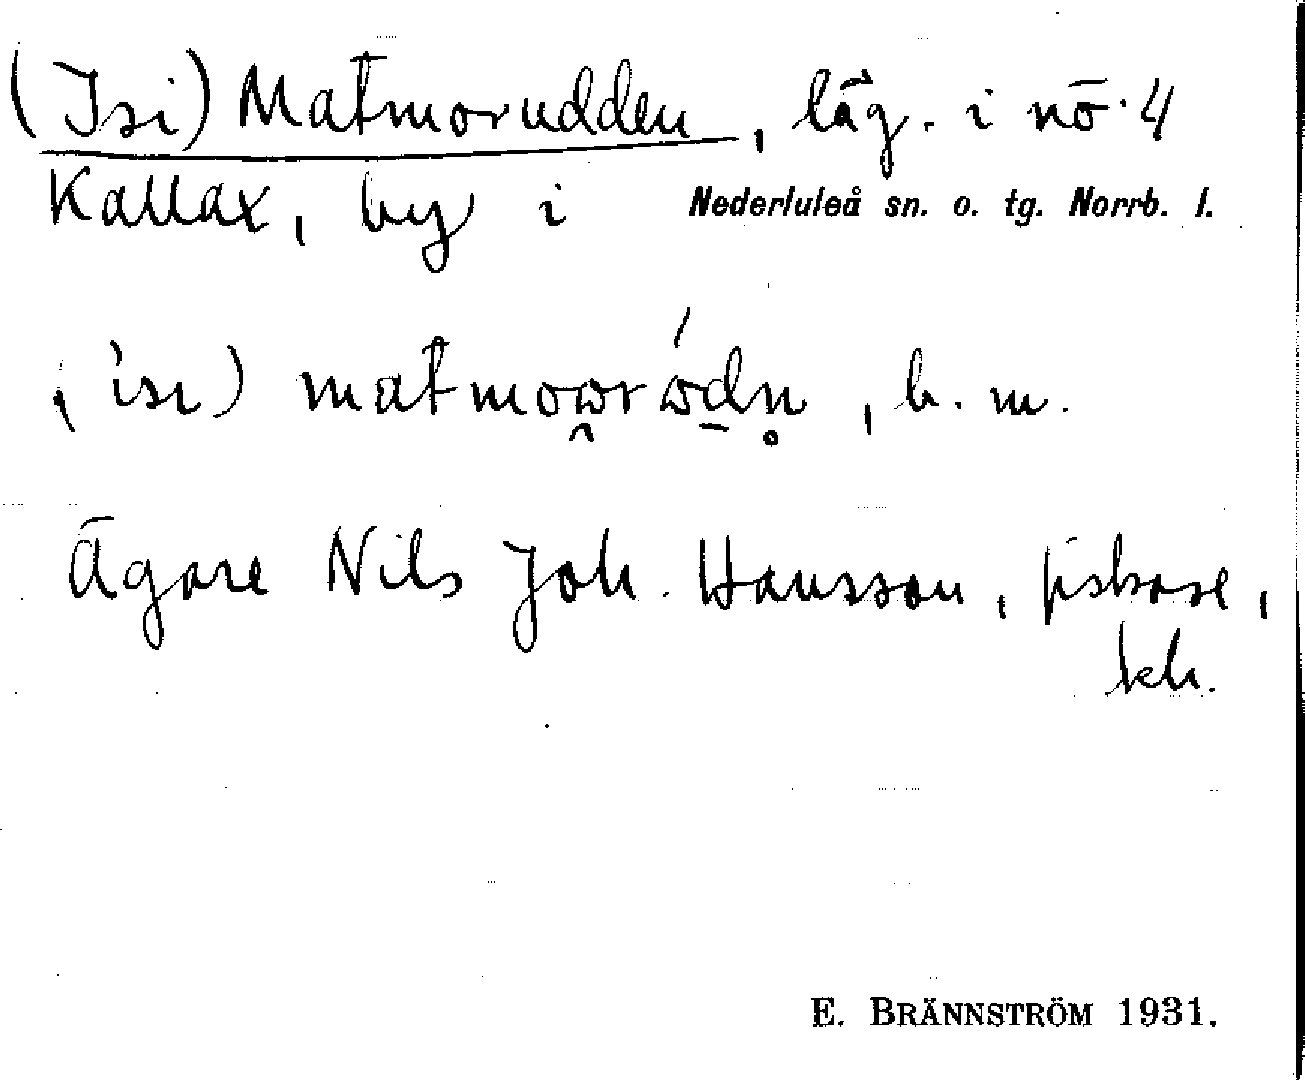 (Isi) Matmorudden, läg. i nö. 4
Kallax, by i Nederluleå sn. o. tg. Norrb. l.
, b. m.
Ägare Nils Joh. Hansson, fiskare,
kh.
E. BRÄNNSTRÖM 1931.